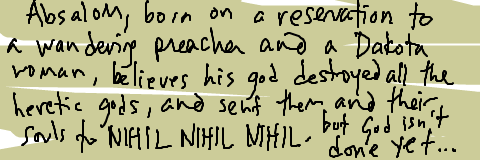 Absalom, born on a reservation to
a wandering preacher and a Dakota
woman, believes his god destroyed all the
heretic gods, and sent them and their
souls to NIHIL NIHIL NIHIL. but God isn't
done yet...